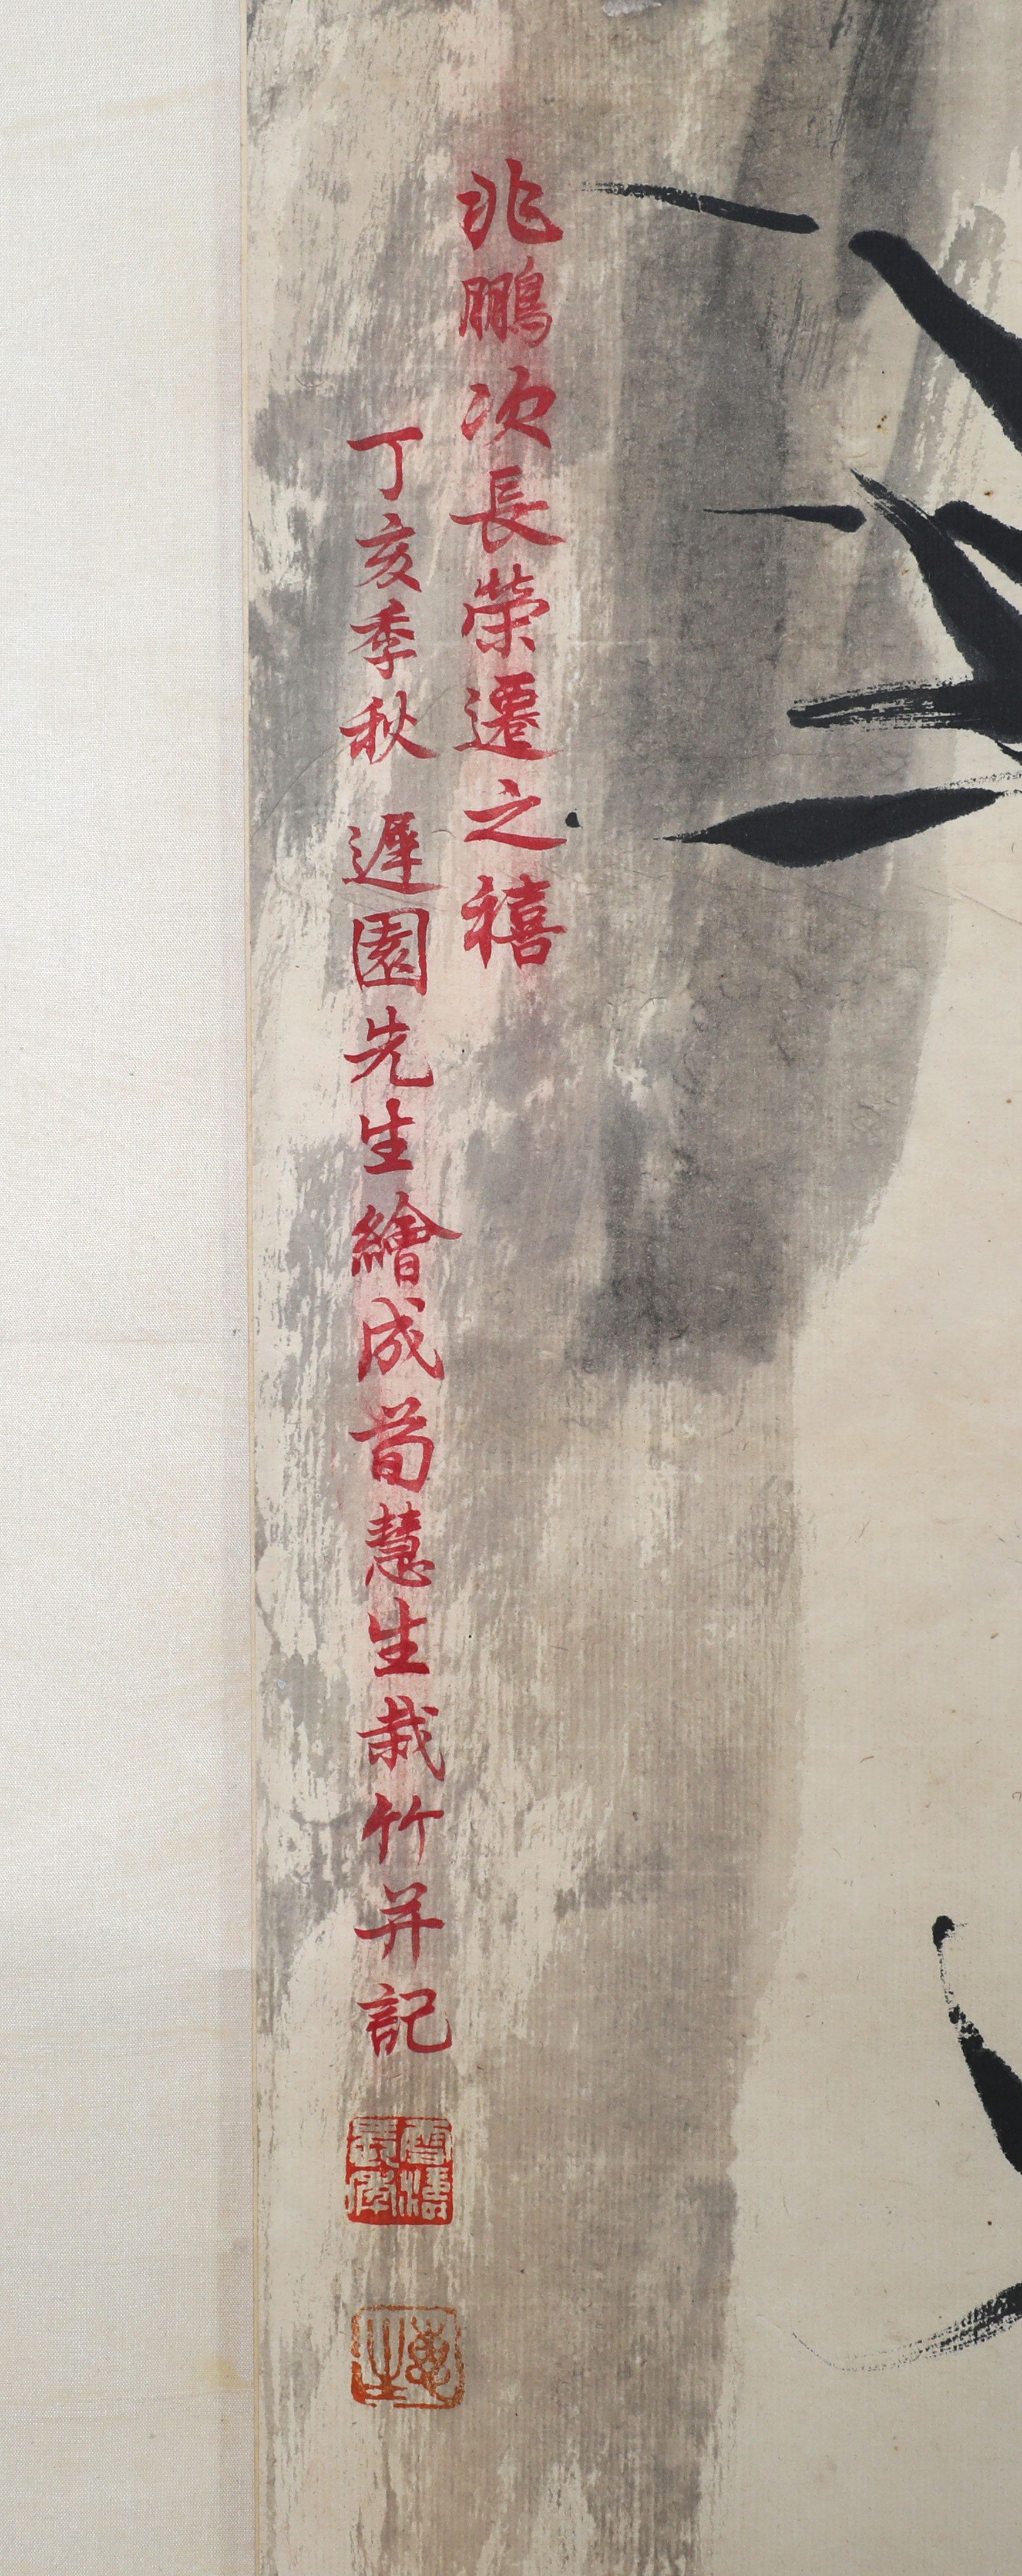 兆鵬次長榮遷之禧
丁亥季秋 遲園先生繪成荀慧生栽竹并記
慧生